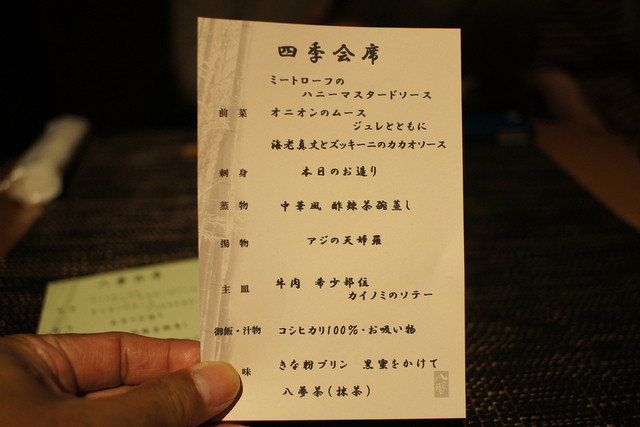 四季会席
ミートローフの
ハニーマスタードソース
前菜 オニオンのムース
ジュレとともに
海老真丈とズッキーニのカカオソース
刺身 本日のお造り
蒸物 中華風 酢辣茶碗蒸し
揚物 アジの天婦羅
主皿 牛肉 希少部位
カイノミのソテー
御飯・汁物 コシヒカリ100%・お吸い物
味 きな粉プリン 黒蜜をかけて
八夢茶(抹茶)